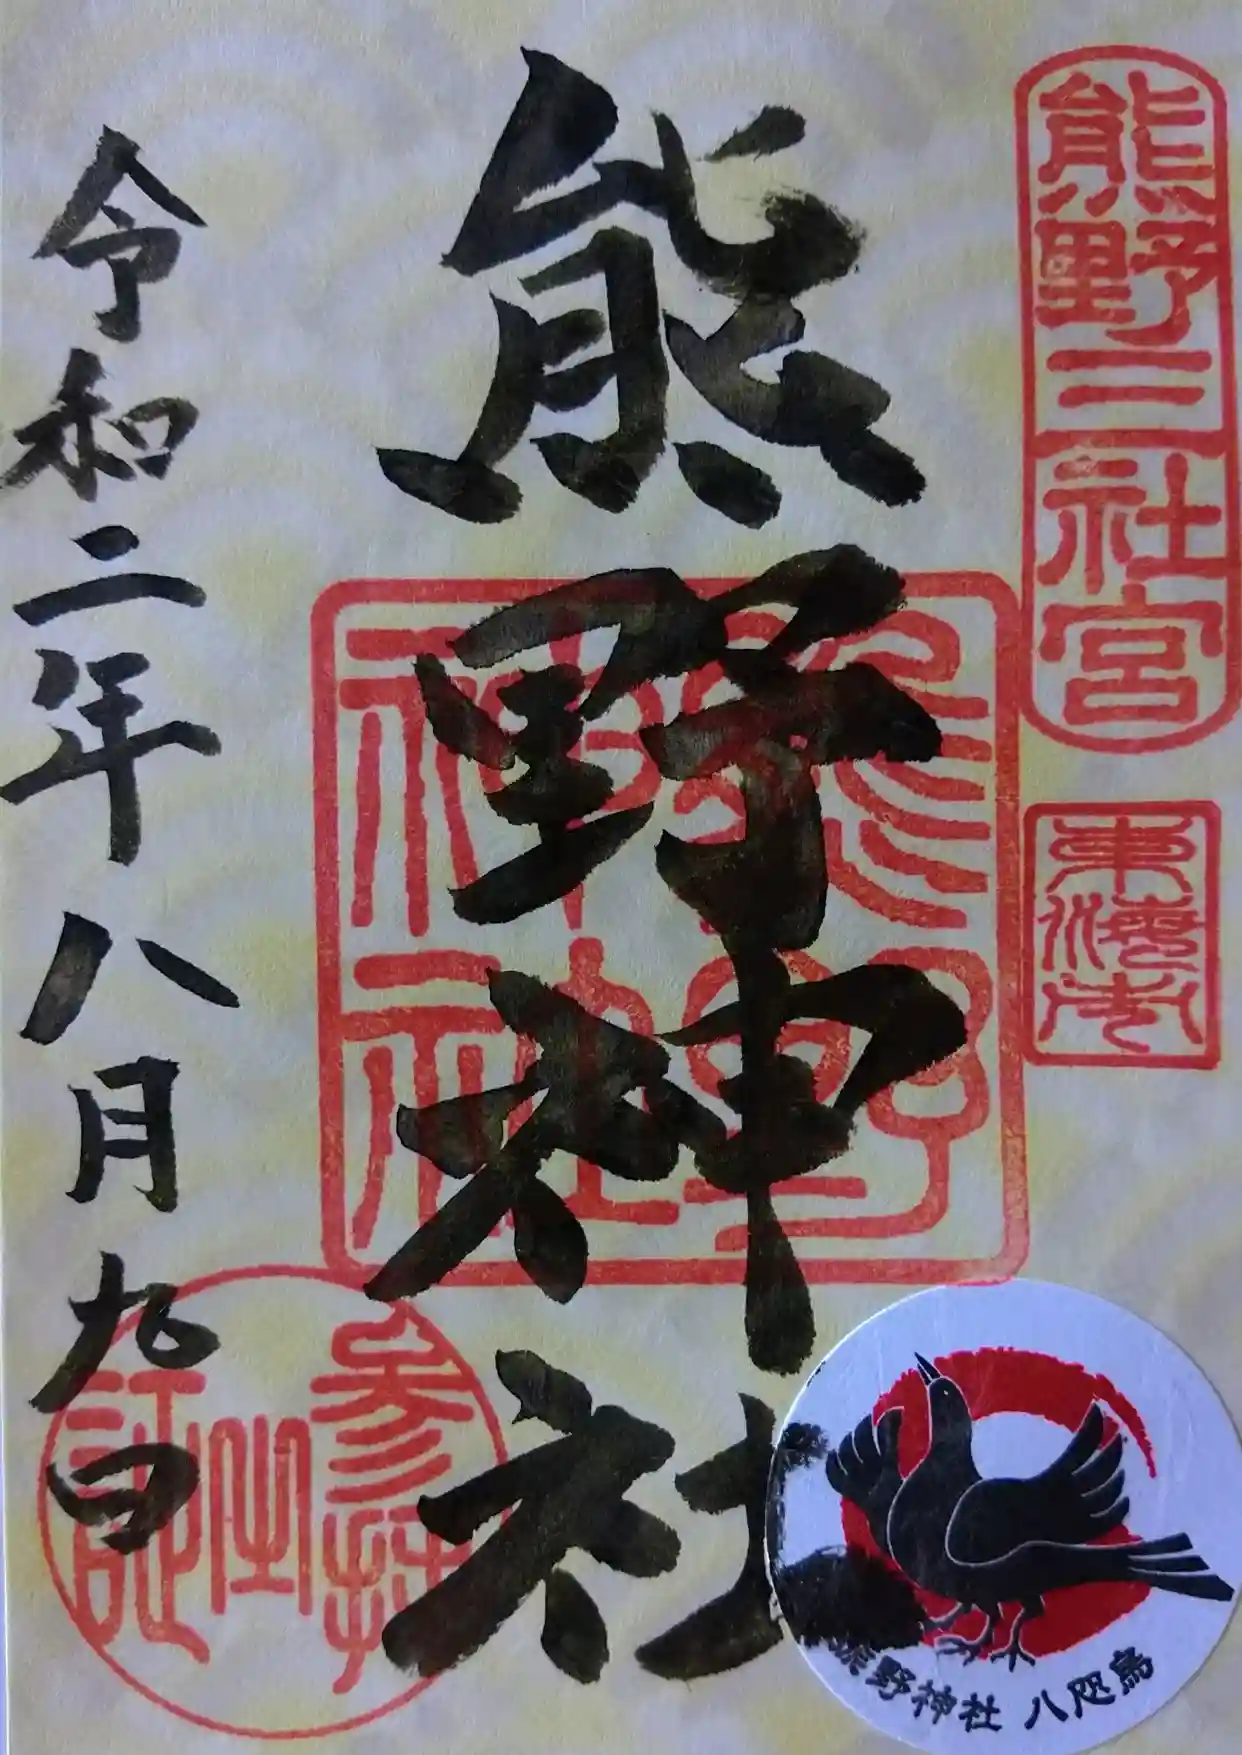 熊野三社宮
東海市
熊野神社
熊野
神社
令和二年八月九日
参拝
熊野神社 八咫烏